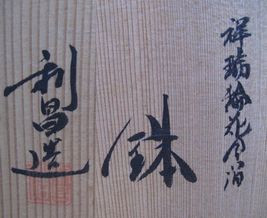 祥瑞輪花
鉢
利昌造